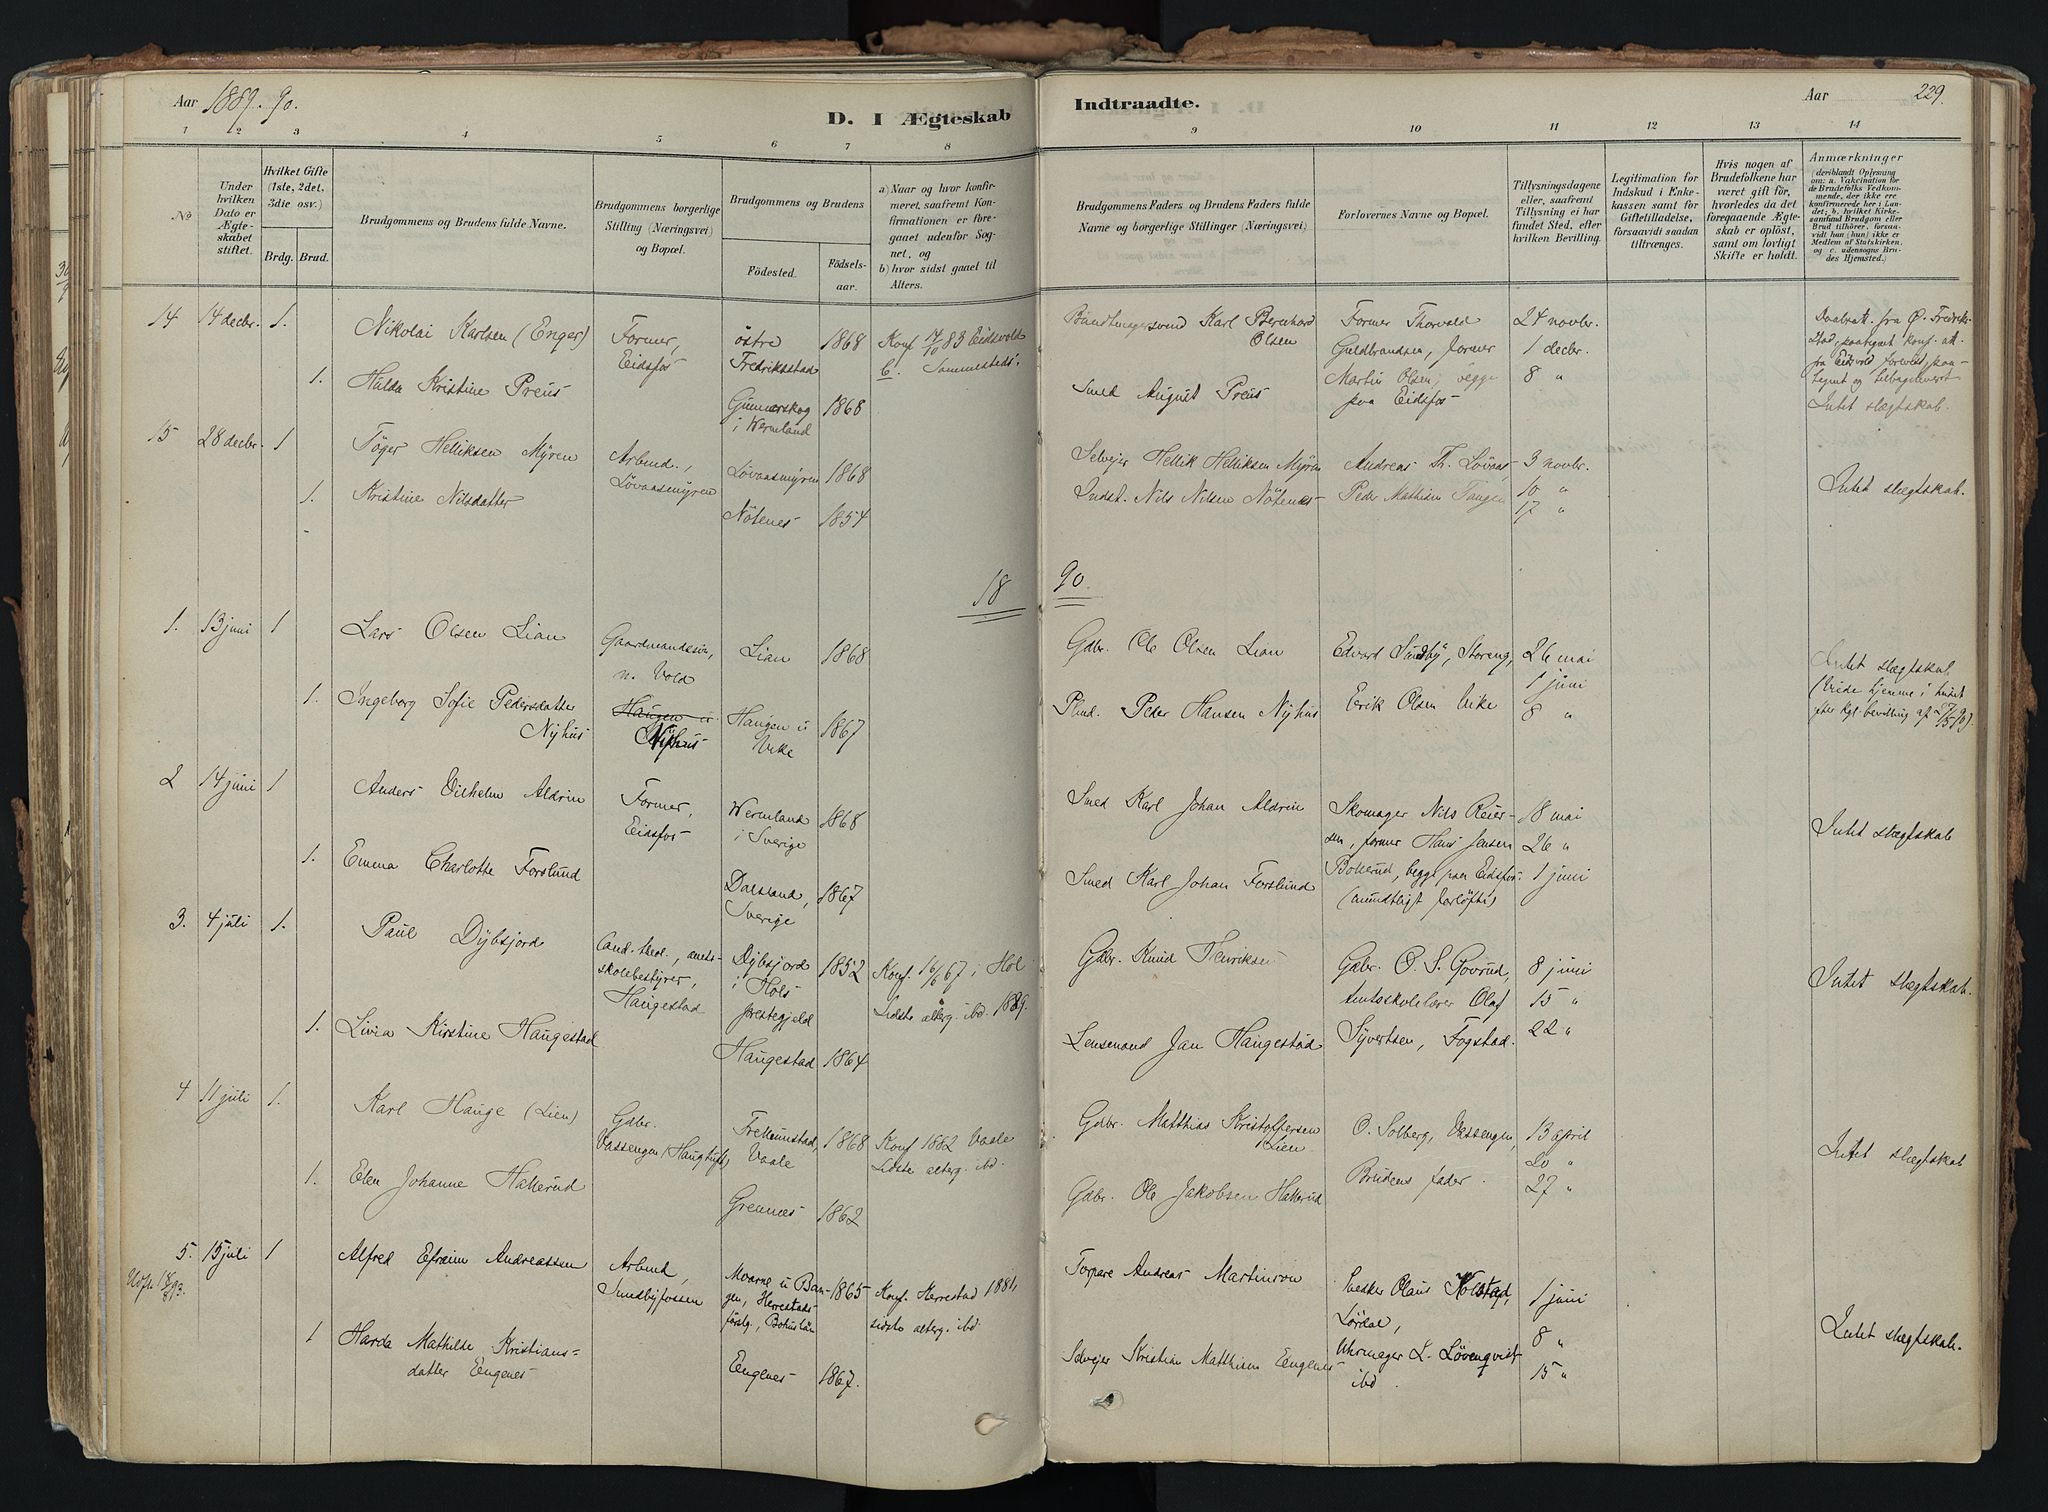 Aar 1889. 90.
D. I Ægteskab
Indtraadte.
Aar
229.
1 2 3 4 5 6 7 8 9 10 11 12 13 14
No
Under hvilken Dato er Ægteskabet stiftet.
Hvilket Gifte (1ste, 2det, 3die osv.)
Brdg. Brud.
Brudgommens og Brudens fulde Navne.
Brudgommens borgerlige Stilling (Næringsvei) og Bopæl.
Brudgommens og Brudens
Födested.
Födselsaar.
a) Naar og hvor konfirmeret, saafremt Konfirmationen er foregaaet udenfor Sognet, og
b) hvor sidst gaaet til Alters.
Brudgommens Faders og Brudens Faders fulde Navne og borgerlige Stillinger (Næringsvei)
Forlovernes Navne og Bopæl.
Tillysningsdagene eller, saafremt Tillysning ei har fundet Sted, efter hvilken Bevilling.
Legitimation for Indskud i Enkekassen samt for Giftetilladelse, forsaavidt saadan tiltrænges.
Hvis nogen af Brudefolkene har været gift för, hvorledes da det foregaaende Ægteskab er oplöst, samt om lovligt Skifte er holdt.
Anmærkninger (deriblandt Oplysning om: a. Vakcination for de Brudefolks Vedkommende, der ikke ere konfirmerede her i Landet; b. hvilket Kirkesamfund Brudgom eller Brud tilhörer, forsaavidt han (hun) ikke er Medlem af Statskirken, og c. udensogns Brudes Hjemsted.)
14 14 decbr. 1. Nikolai Karlsen (Enger) Former, Eidsfos östre Fredriksstad 1868 Konf 14/10 83 Eidsvold
b. Sammesteds.
Bundtmagersvend Karl Bernhard Olsen
Former Thorvald Guldbrandsen, former Martin Olsen, begge paa Eidsfos
24 novbr.
1 decbr.
8 "
Daabsatt. fra Ø. Fredriksstad, paategnet konf. att. fra Eidsvold forevist, paategnet og tilbageleveret
Intet slægtskab.
1. Hulda Kristine Preus Gunnarskog i Wermland 1868
Smed August Preus
15 28 decbr. 1 Töger Helliksen Myren Arbmd., Lövaasmyren Lövaasmyren 1868
Selveier Hellik Helliksen Myren Andreas Th. Lövaas 3 novbr.
1. Kristine Nilsdatter Nötenes 1854
Indst. Nils Nilsen Nötenes Peder Mathisen Tangen 10 "
17 "
Intet slægtskab.
18 90.
1. 13 juni 1 Lars Olsen Lian Gaardmandssön, n. Vold Lian 1868
Gdbr. Ole Olsen Lian Edvard Sundby, Storeng, 26 mai
1 juni
8 "
1. Ingeborg Sofie Pedersdatter Nyhus Haugen u Nyhus Haugen u Vike 1867
Plmd. Peder Hansen Nyhus Erik Olsen Vike
Intet slægtskab
(Viede hjemme i huset efter kgl. bevilling af 27/5 90)
2 14 juni 1 Anders Vilhelm Aldrin Former, Eidsfos Wermland i Sverige 1868
Smed Karl Johan Aldrin Skomager Nils Reiersen, former Hans Jensen Bollerud, begge paa Eidsfos. (mundtligt forlöfte)
18 mai
26 "
1 juni
Intet slægtskab
1. Emma Charlotte Forslund Dalsland, Sverige 1867
Smed Karl Johan Forslund
3. 4 juli 1. Paul Dybsjord Cand. theol., amtsskolebestyrer, Haugestad Dybsjord i Hols prestegjeld 1852 Konf. 16/6 67 i Hol
Sidste alterg. ibd. 1889.
Gdbr. Knud Henriksen Gdbr. O. S. Govrud, Amtsskolelærer Olaf Syvertsen, Fogstad.
8 juni
15 "
22 "
Intet slægtskab.
1. Livia Kirstine Haugestad Haugestad 1864
Lensmand Jan Haugestad
4 11 juli 1. Karl Hauge (Lien) Gdbr. Vassengen (Haugtuft) Trollumstad, Vaale 1868 Konf 1882 Vaale
Sidste alterg. ibd.
Gdbr. Matthias Kristoffersen Lien O. Solberg, Vassengen, 13 april
20 "
27 "
Intet slægtskab
1. Elen Johanne Hallerud Grennes 1862
Gdbr. Ole Jakobsen Hallerud Brudens fader.
5. 15 juli 1 Alfred Efraim Andreassen Arbmd, Sundbyfossen Moarne u Bangen, Herrestads förslg., Bohuslän 1865 Konf. Herrestad 1881,
sidste alterg. ibd.
Torpare Andreas Martinson Snekker Olaus Kolstad, Lördal, 1 juni
8 "
15 "
Intet slægtskab.
1 Harda Mathilde Kristiansdatter Eengenes Eengenes 1867.
Selveier Kristian Matthisen Eengenes Uhrmager L. Lövenqvist ibd.